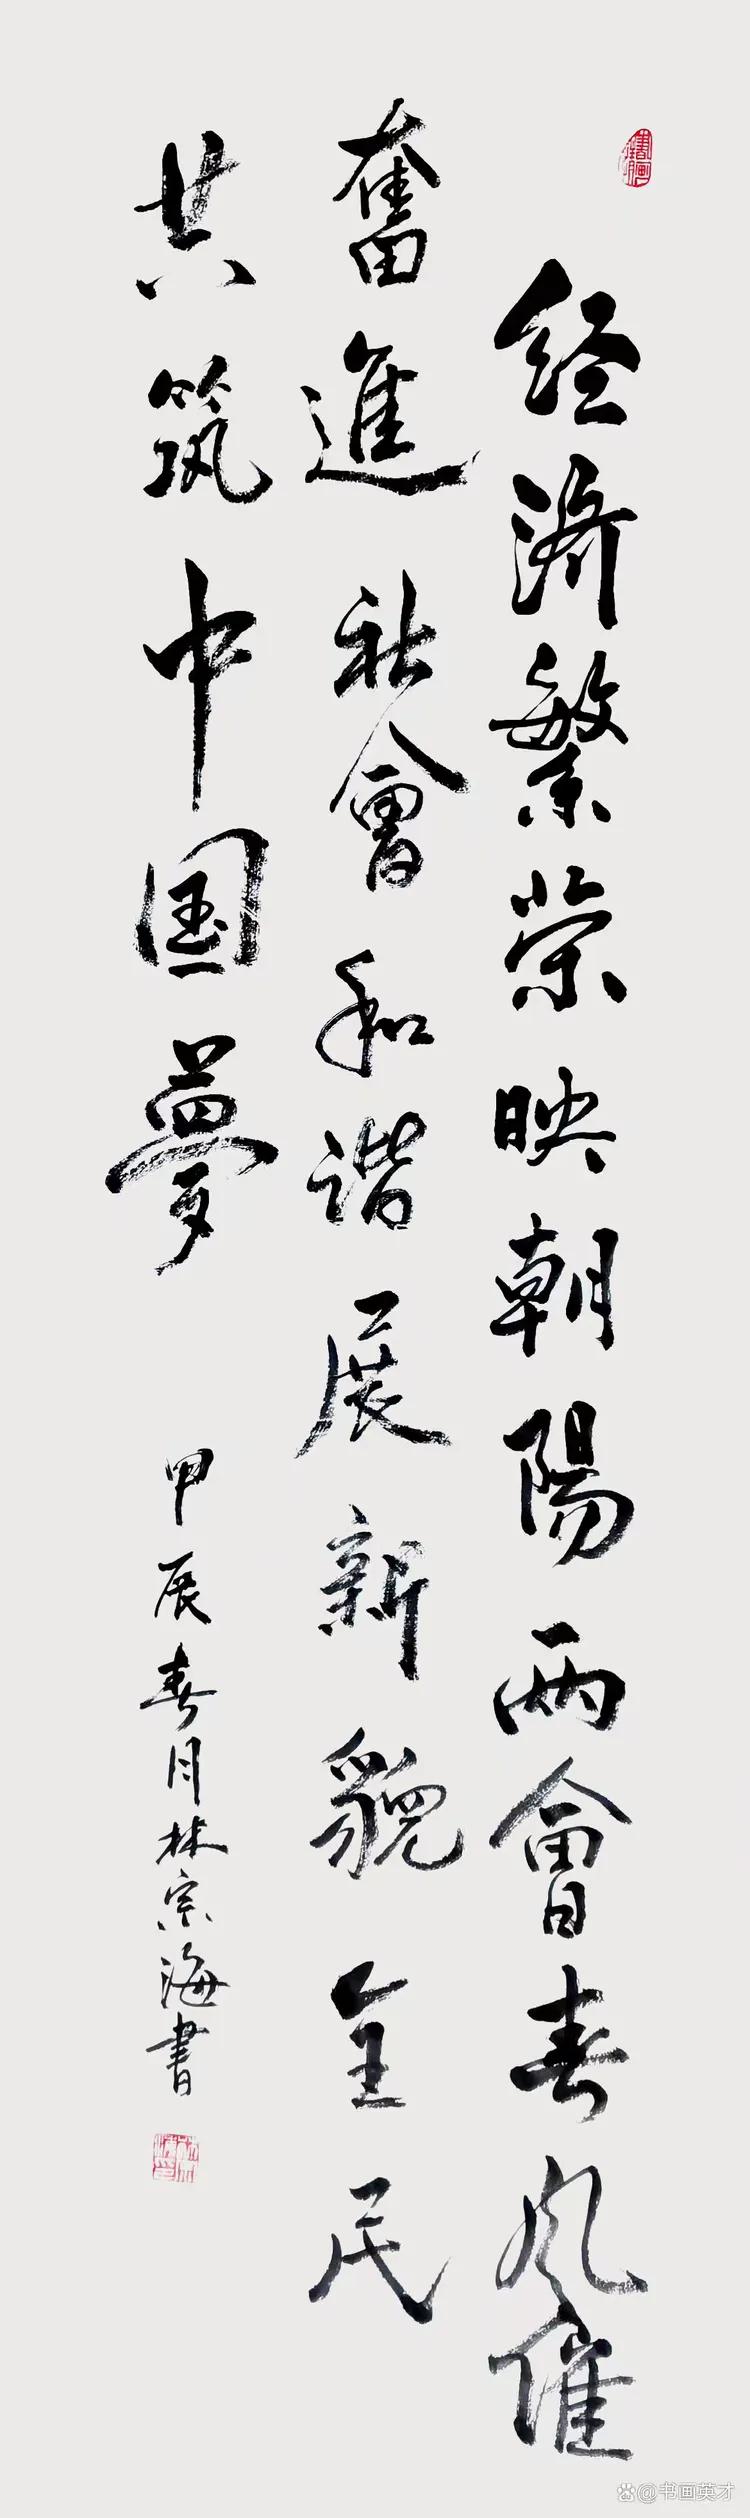 经济繁荣映朝陽两會春风催
奮進社會和谐展新貌全民
共筑中国夢
甲辰春月林宗海書
@书画英才